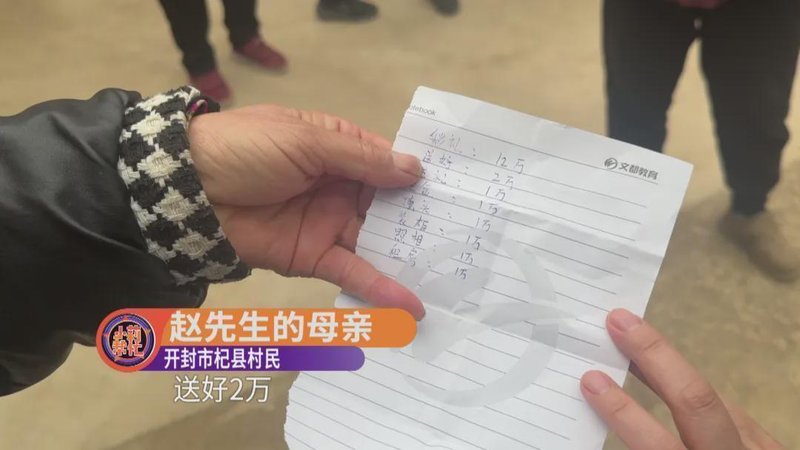 notebook
文都教育
礼：12万
送好：2万
记：1万
1万
头：1万
装柜：1万
照相：1万
1万
赵先生的母亲
开封市杞县村民
送好2万